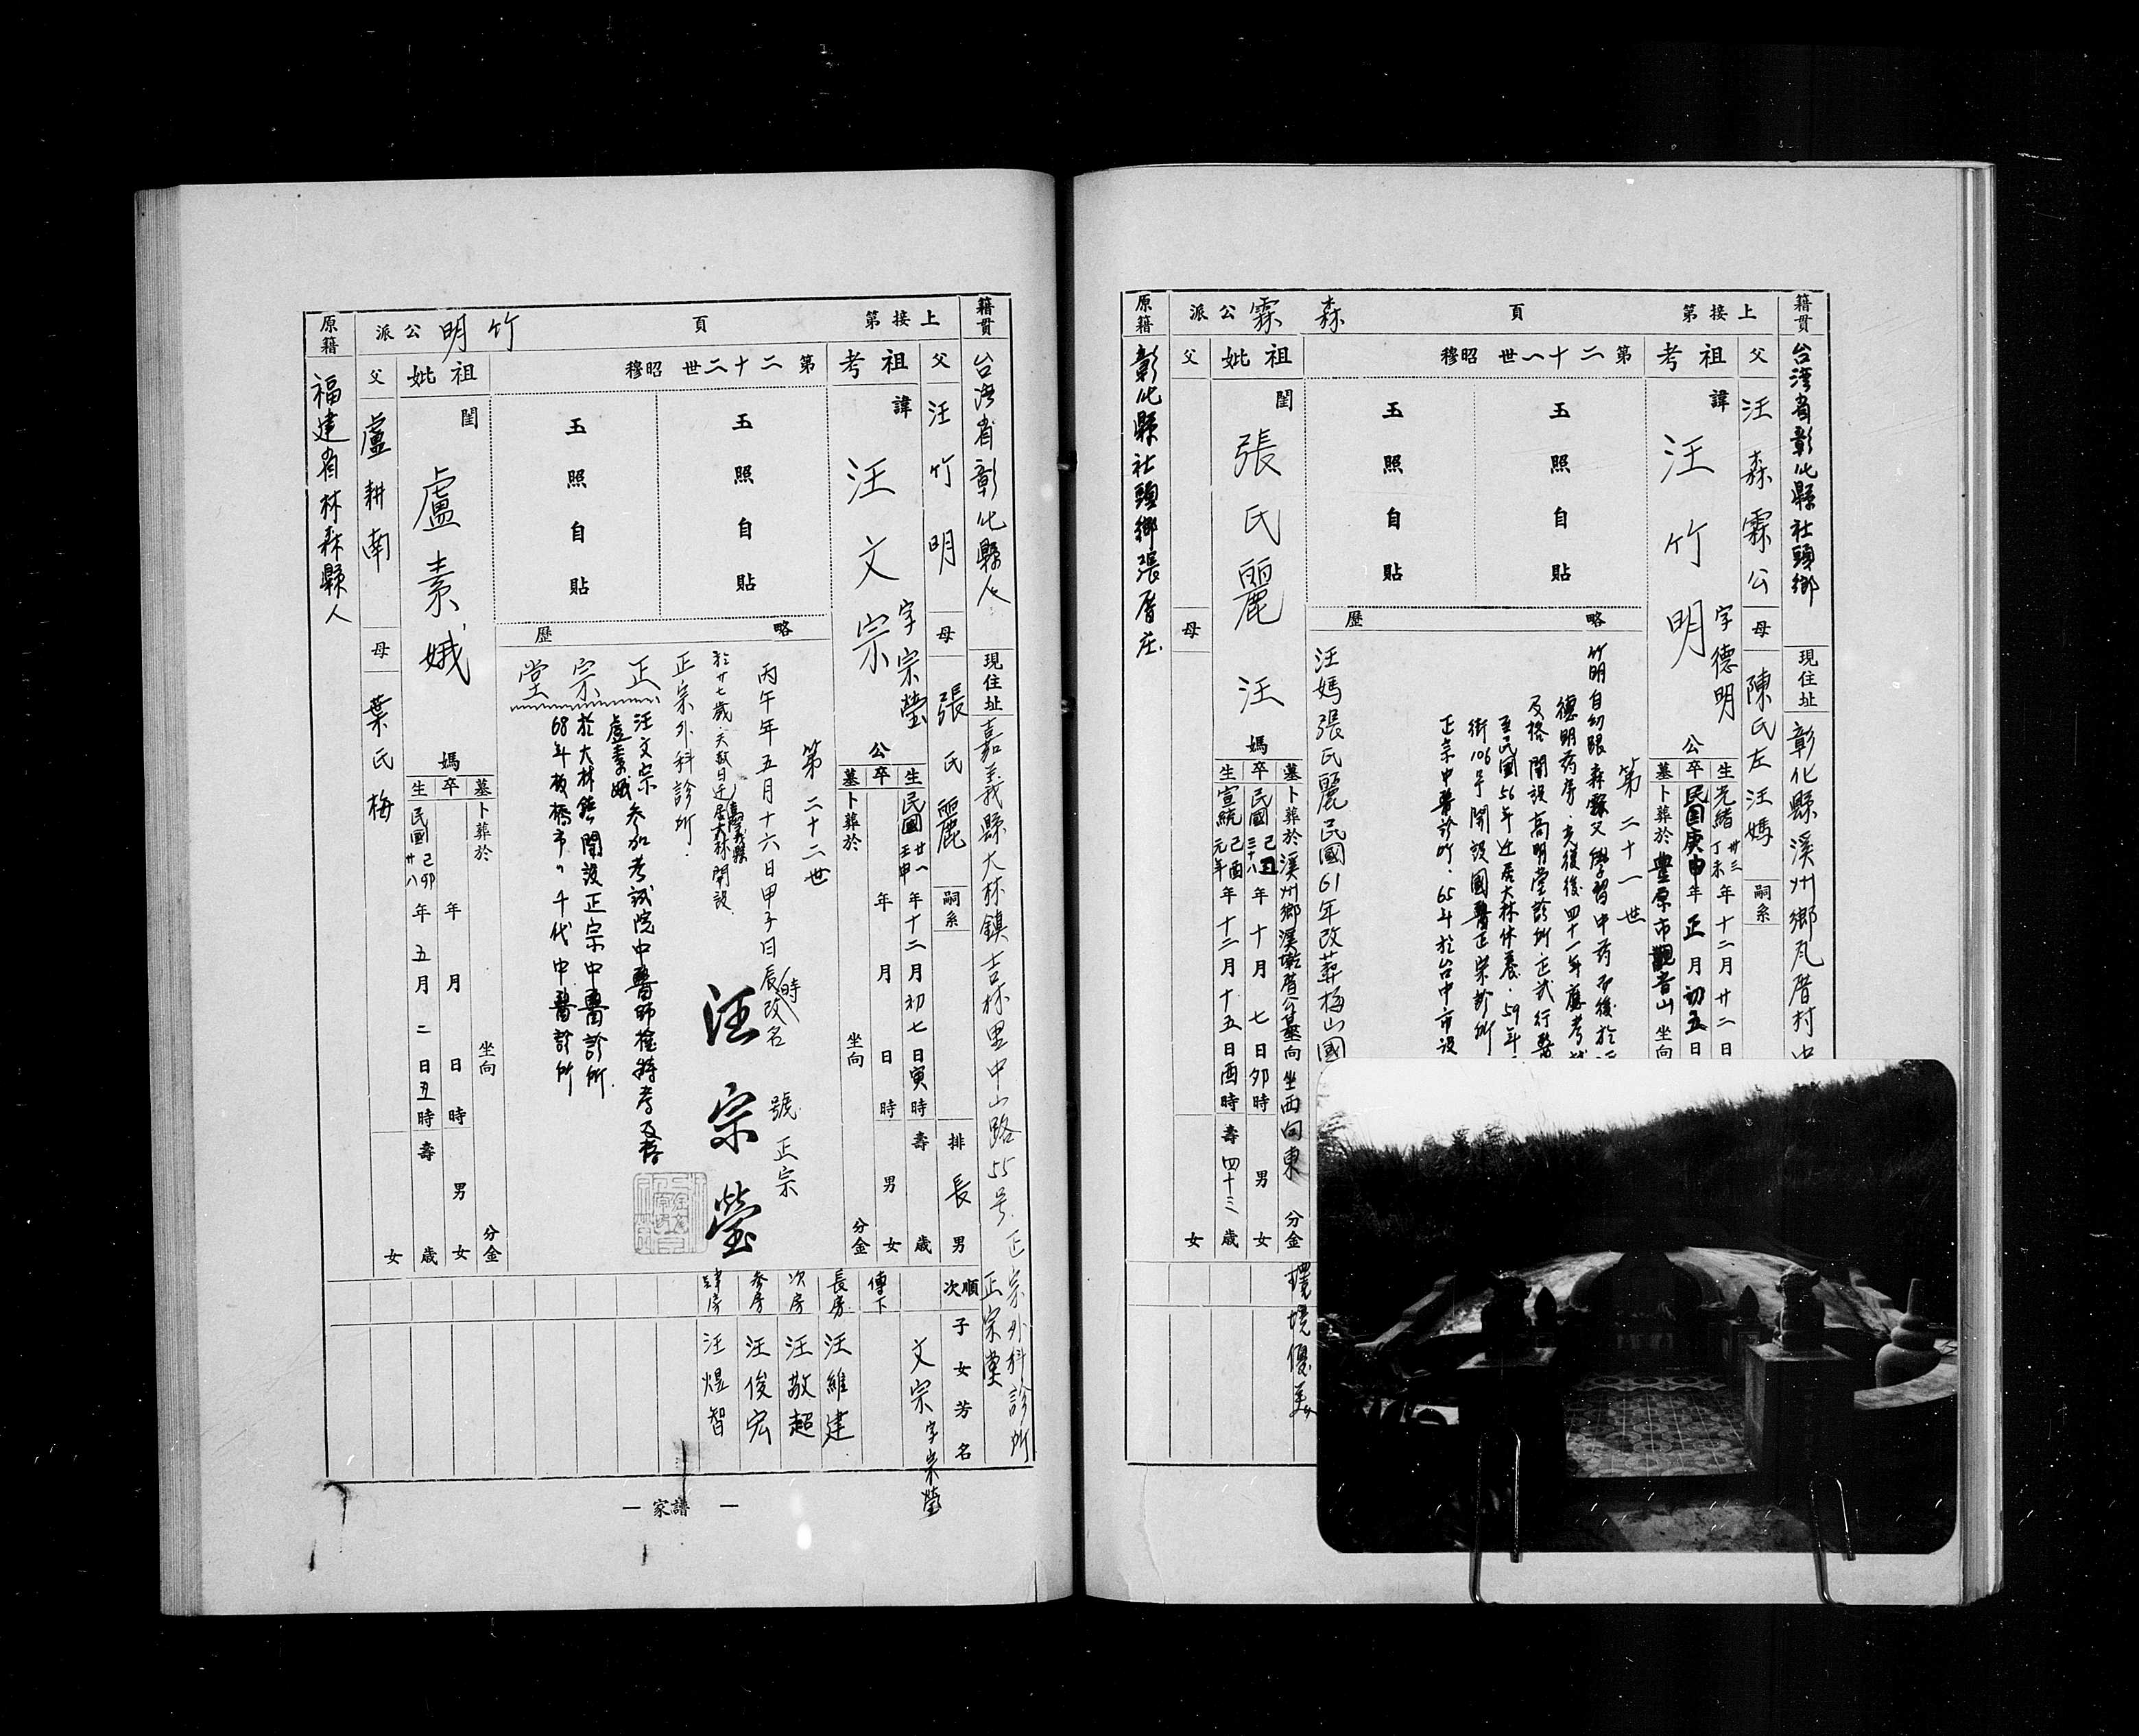 籍貫 台湾省彰化縣社頭鄉 現住址 彰化縣溪州鄉瓦厝村中
上接第 頁 森霖公派
父 汪森霖公 母 陳氏左汪媽 嗣系
祖考 諱 汪竹明 字德明 公
生 光緒廿三丁未年十二月廿二日
卒 民国庚申年正月初五日
墓 卜葬於豊原市觀音山 坐向
第二十一世 昭穆
玉照自貼
玉照自貼
略歷
第二十一世
竹明自幼跟森霖父學習中葯而後於
德明葯房.光復後四十一年應考
及格開設高明堂診所.正式行醫
至民國56年迁居大林休養.59年.
街106号開設國醫正宗診所
正宗中醫診所.65年於台中市設
汪媽張氏麗民國61年改葬梅山國
祖妣 閨 張氏麗汪媽
墓 卜葬於溪州鄉溪墘厝公墓向坐西向東 分金 環境優美
卒 民國三十八己丑年十月七日夘時 男 女
生 宣統元年己酉年十二月十五日酉時 壽四十三歲
父 母 女
原籍 彰化縣社頭鄉張厝庄.
籍貫 台湾省彰化縣人 現住址 嘉義縣大林鎮吉林里中山路55号.正宗外科診所
正宗堂
上接第 頁 竹明公派
父 汪竹明 母 張氏麗 嗣系 排 長男
祖考 諱 汪文宗 字宗瑩 公
生 民國廿一壬申年十二月初七日寅時 壽 歲
卒 年 月 日 時 男 女
墓 卜葬於 坐向 分金
第二十二世 昭穆
玉照自貼
玉照自貼
略歷
第二十二世
丙午年五月十六日甲子日辰時改名 號正宗
汪宗瑩
於廿七歲.天赦日迁居嘉義縣大林開設.
正宗外科診所.
正宗堂
汪文宗
盧素娥 参加考試院中醫師檢特考及格
於大林鎮開設正宗中醫診所.
68年板橋市〃千代中醫診所
祖妣 閨 盧素娥 媽
墓 卜葬於 坐向 分金
卒 年 月 日 時 男 女
生 民國廿八己卯年五月二日丑時 壽 歲
父 盧耕南 母 葉氏梅 女
原籍 福建省林森縣人
順次 子女芳名
文宗字宗瑩
傳下
長房 汪維建
次房 汪敬超
参房 汪俊宏
肆房 汪煜智
— 家譜 —